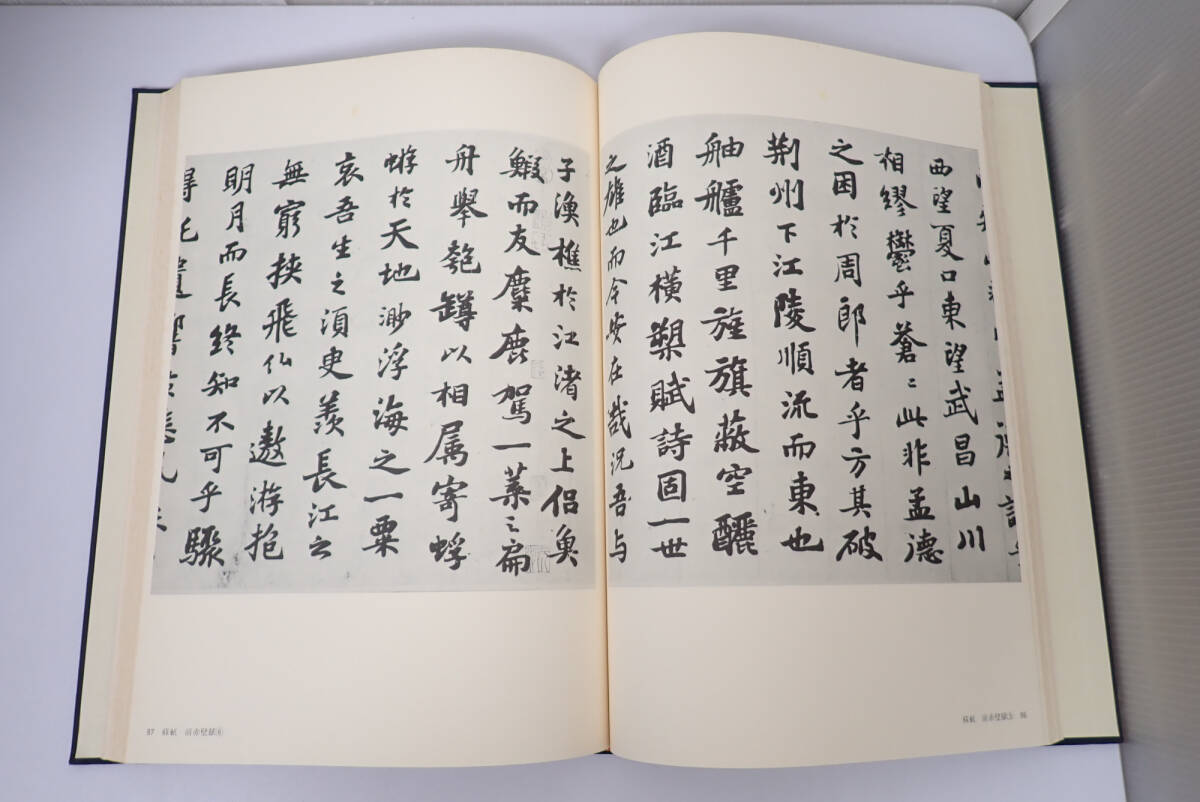 西望夏口東望武昌山川
相繆鬱乎蒼〻此非孟德
之困於周郎者乎方其破
荆州下江陵順流而東也
舳艫千里旌旗蔽空釃
酒臨江橫槊賦詩固一世
之雄也而今安在哉況吾與
子漁樵於江渚之上侶魚
鰕而友麋鹿駕一葉之扁
舟舉匏罇以相属寄蜉
蝣於天地渺浮海之一粟
哀吾生之須臾羨長江之
無窮挾飛仙以遨游抱
明月而長終知不可乎驟
蘇軾 前赤壁賦⑤ 86
87 蘇軾 前赤壁賦⑥